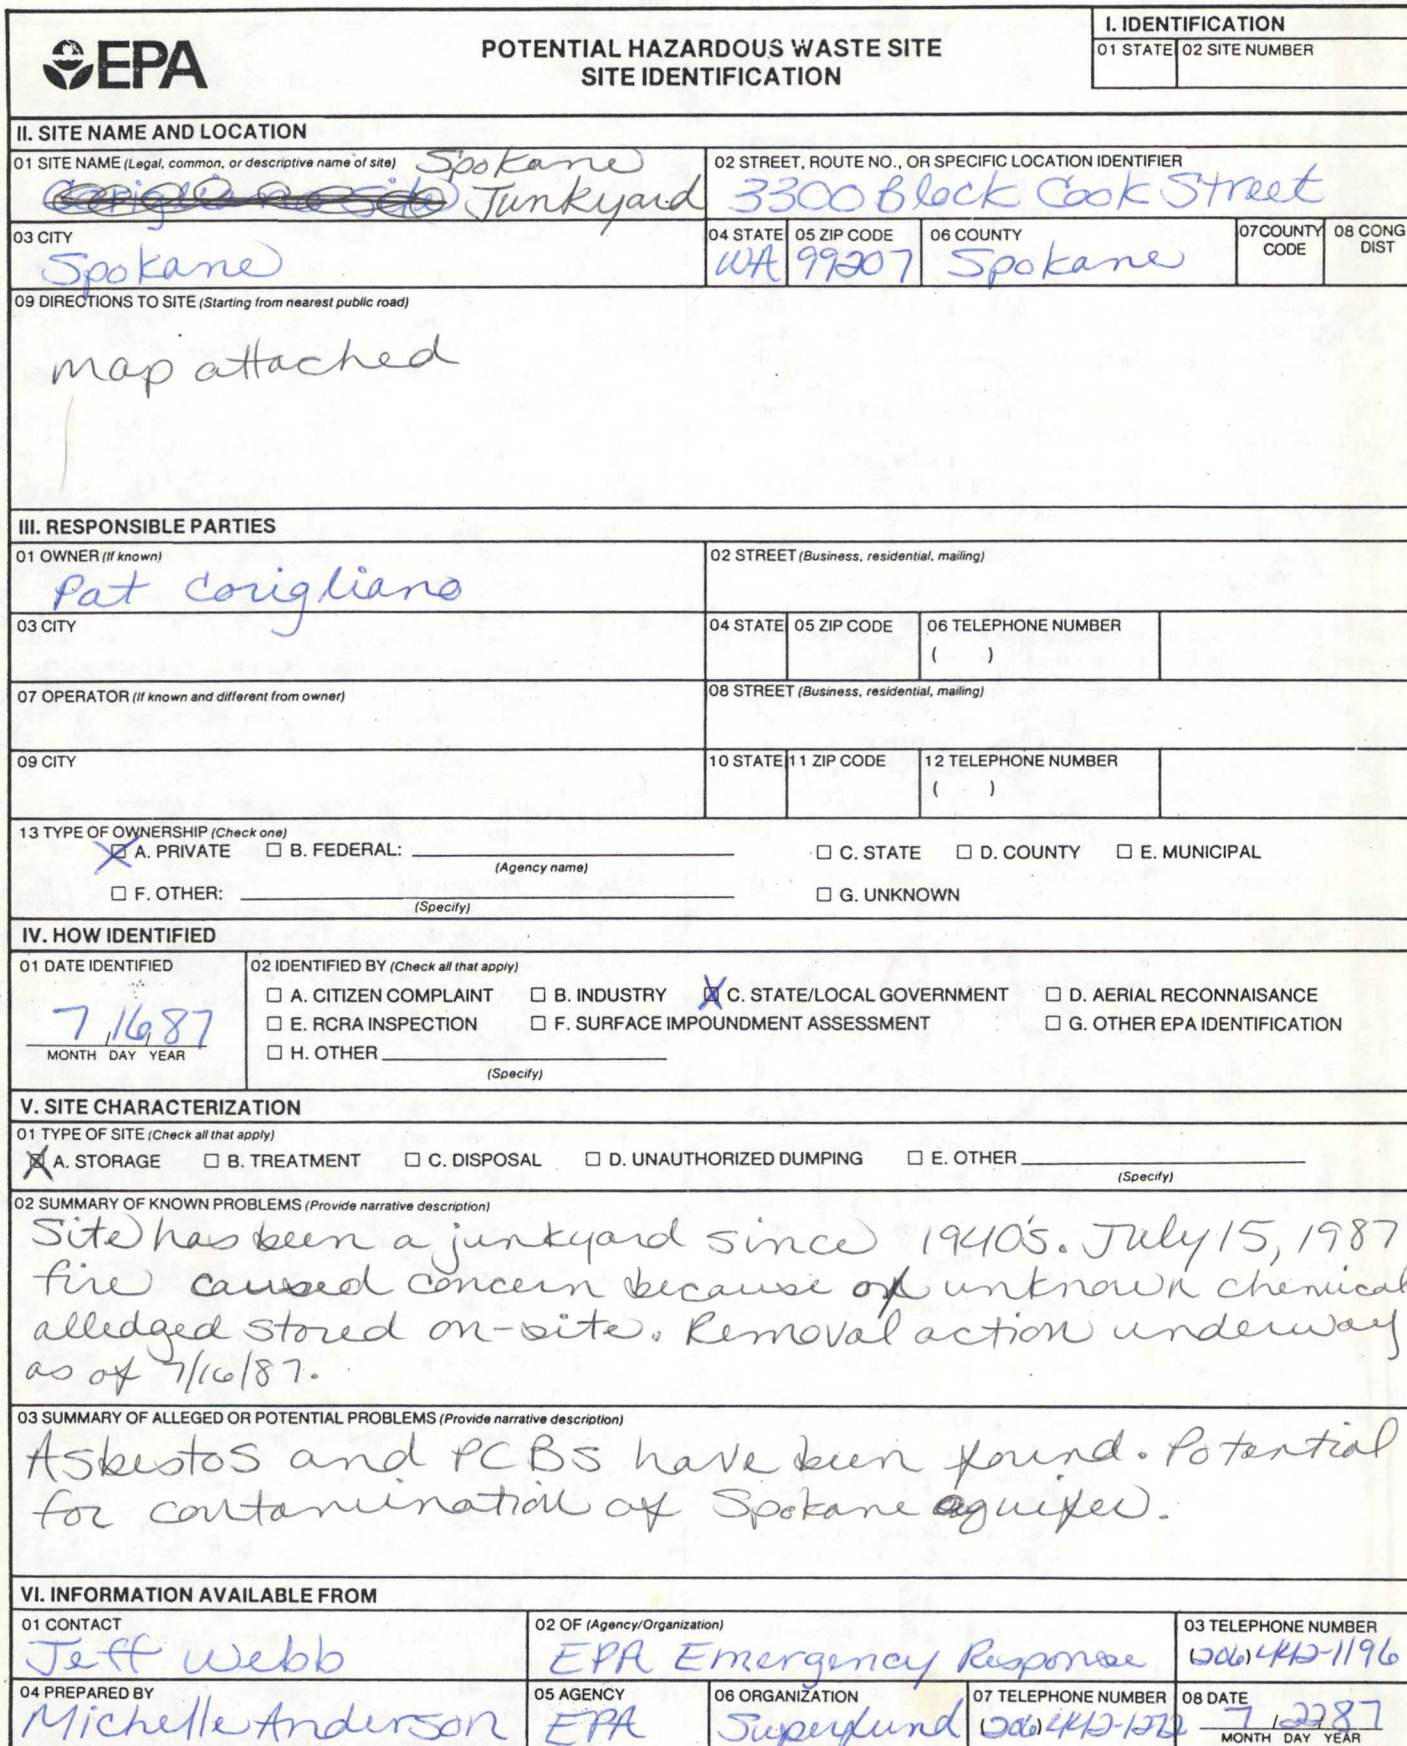 I. IDENTIFICATION
EPA
POTENTIAL HAZARDOUS WASTE SITE
SITE IDENTIFICATION
01 STATE 02 SITE NUMBER
II. SITE NAME AND LOCATION
01 SITE NAME (Legal, common, or descriptive name of site)
Spokane
Junkyard
02 STREET, ROUTE NO., OR SPECIFIC LOCATION IDENTIFIER
3300 Block Cook Street
03 CITY
Spokane
04 STATE
WA
05 ZIP CODE
99207
06 COUNTY
Spokane
07 COUNTY
CODE
08 CONG
DIST
09 DIRECTIONS TO SITE (Starting from nearest public road)
map attached
III. RESPONSIBLE PARTIES
01 OWNER (If known)
Pat Corigliano
02 STREET (Business, residential, mailing)
03 CITY
04 STATE
05 ZIP CODE
06 TELEPHONE NUMBER
( )
07 OPERATOR (If known and different from owner)
08 STREET (Business, residential, mailing)
09 CITY
10 STATE
11 ZIP CODE
12 TELEPHONE NUMBER
( )
13 TYPE OF OWNERSHIP (Check one)
A. PRIVATE B. FEDERAL: C. STATE D. COUNTY E. MUNICIPAL
(Agency name)
F. OTHER: G. UNKNOWN
(Specify)
IV. HOW IDENTIFIED
01 DATE IDENTIFIED
7 16 87
MONTH DAY YEAR
02 IDENTIFIED BY (Check all that apply)
A. CITIZEN COMPLAINT B. INDUSTRY C. STATE/LOCAL GOVERNMENT D. AERIAL RECONNAISANCE
E. RCRA INSPECTION F. SURFACE IMPOUNDMENT ASSESSMENT G. OTHER EPA IDENTIFICATION
H. OTHER
(Specify)
V. SITE CHARACTERIZATION
01 TYPE OF SITE (Check all that apply)
A. STORAGE B. TREATMENT C. DISPOSAL D. UNAUTHORIZED DUMPING E. OTHER
(Specify)
02 SUMMARY OF KNOWN PROBLEMS (Provide narrative description)
Site has been a junkyard since 1940's. July 15, 1987
fire caused concern because of unknown chemical
alledged stored on-site. Removal action underway
as of 7/16/87.
03 SUMMARY OF ALLEGED OR POTENTIAL PROBLEMS (Provide narrative description)
Asbestos and PCBS have been found. Potential
for contamination of Spokane aquifer.
VI. INFORMATION AVAILABLE FROM
01 CONTACT
Jeff Webb
02 OF (Agency/Organization)
EPA Emergency Response
03 TELEPHONE NUMBER
(206) 442-1196
04 PREPARED BY
Michelle Anderson
05 AGENCY
EPA
06 ORGANIZATION
Superfund
07 TELEPHONE NUMBER
08 DATE
7 22 87
MONTH DAY YEAR